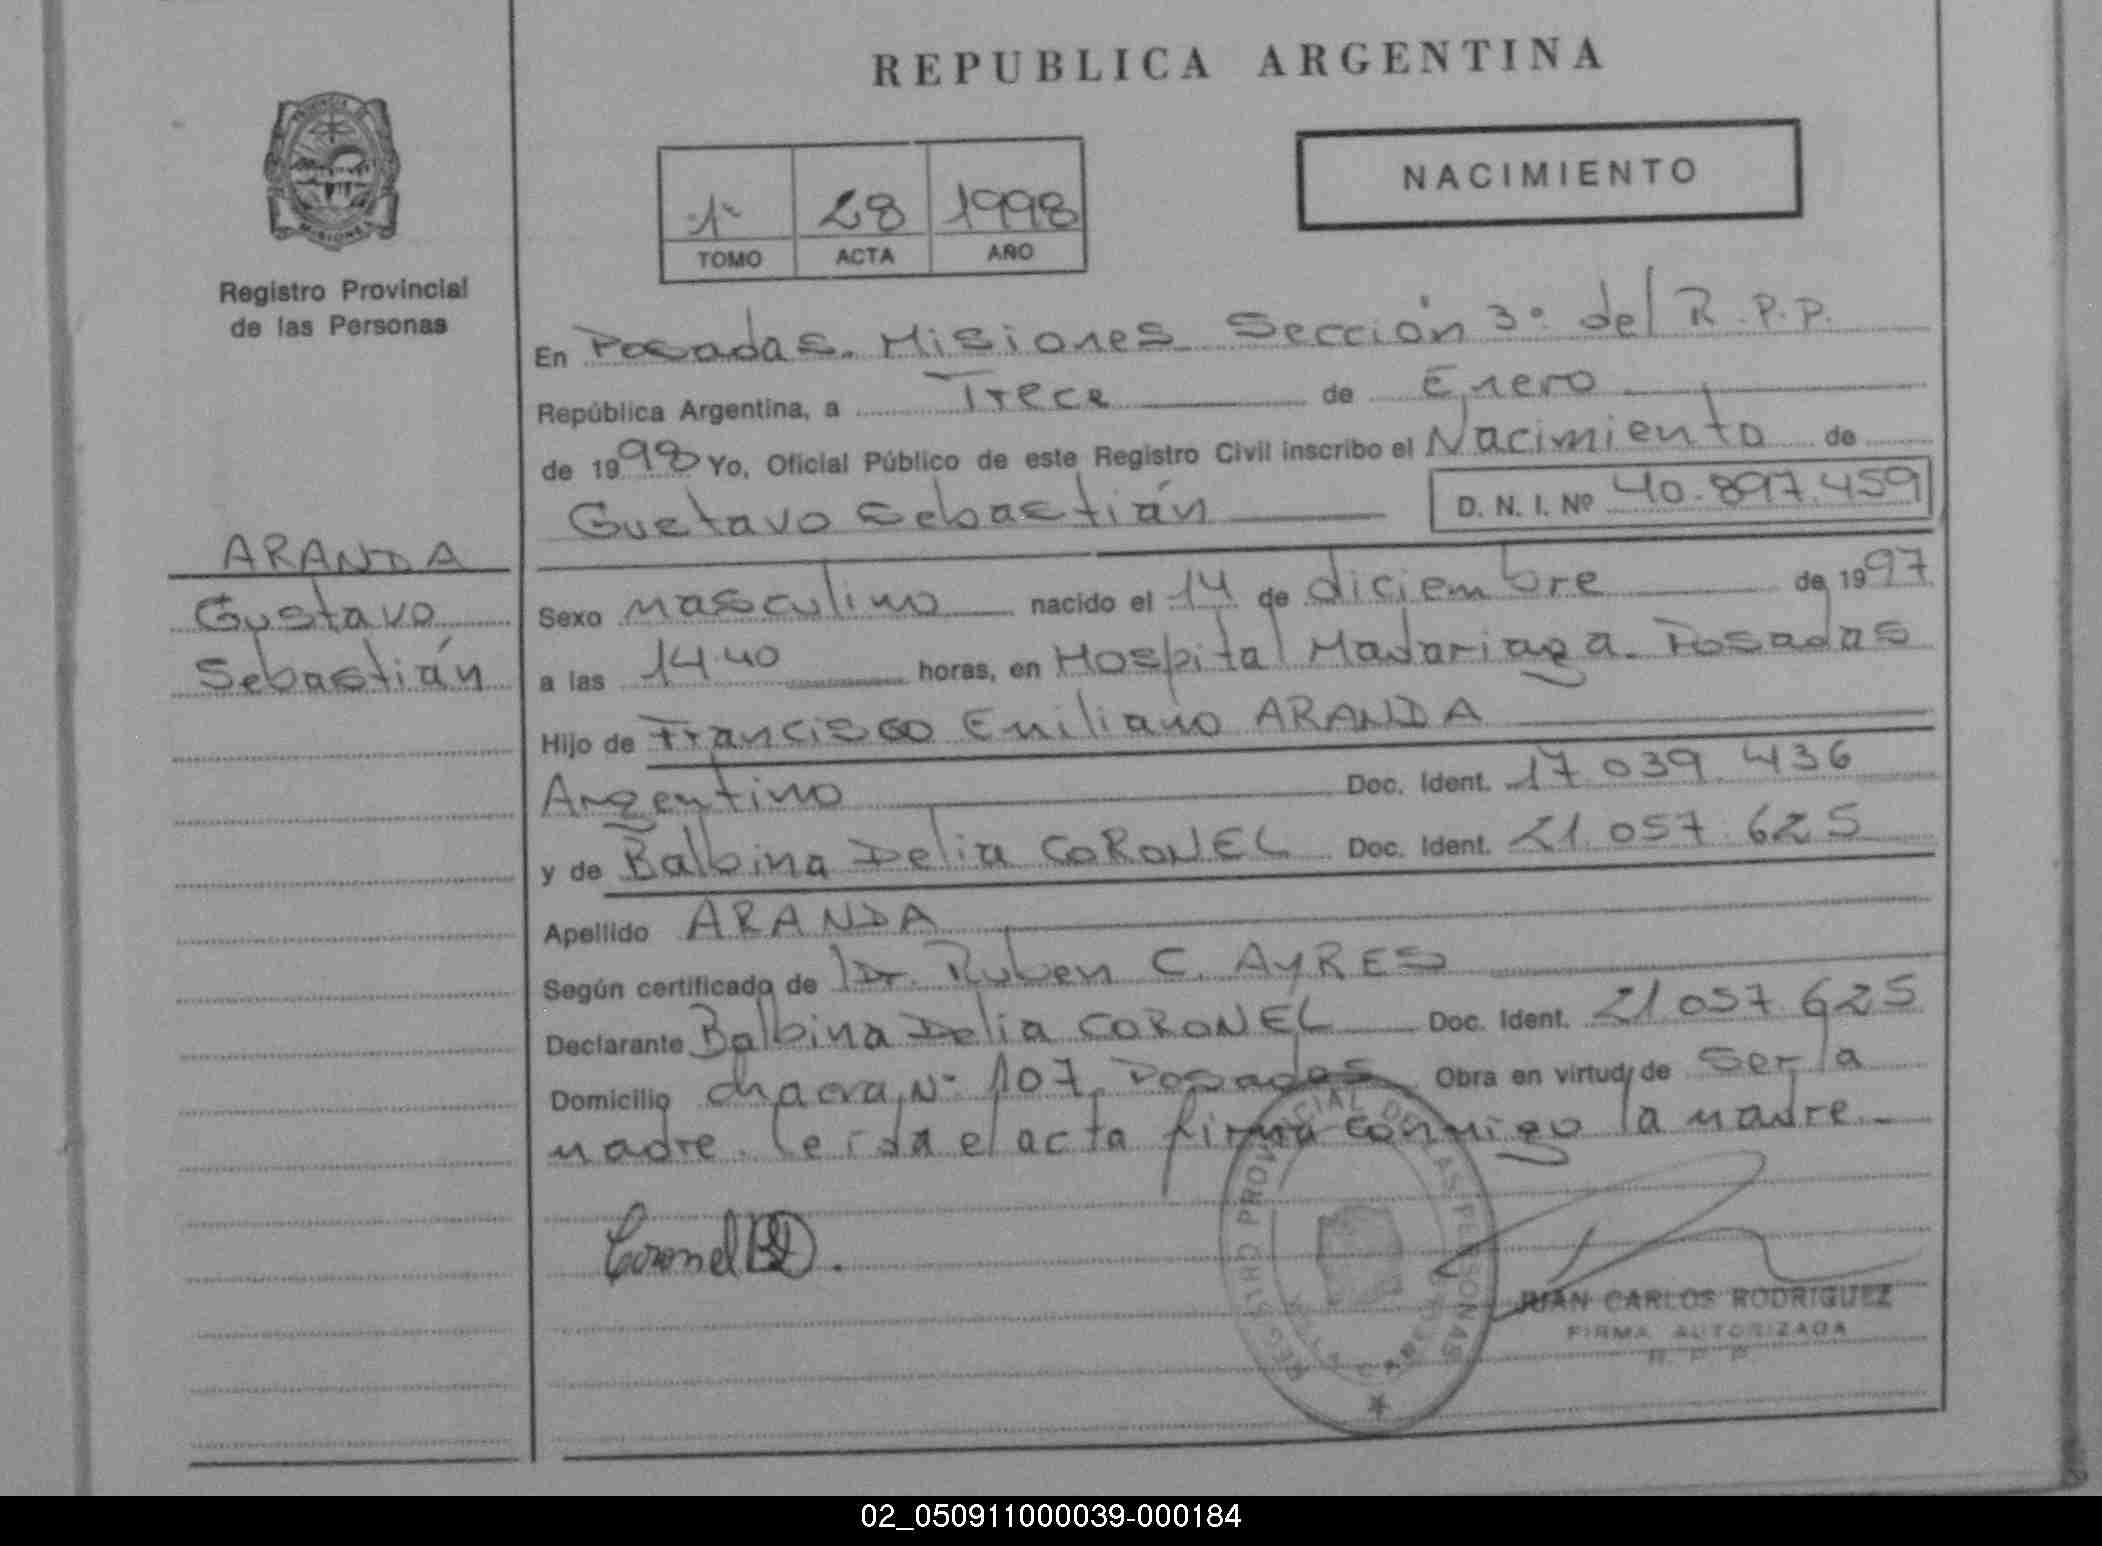 REPUBLICA ARGENTINA
PROVINCIA
MISIONES
Registro Provincial
de las Personas
NACIMIENTO
1º 28 1998
TOMO ACTA AÑO
En Posadas. Misiones Sección 3º del R.P.P.
República Argentina, a Trece de Enero
de 1998 Yo, Oficial Público de este Registro Civil inscribo el Nacimiento de
Gustavo Sebastián D. N. I. Nº 40.897.459
ARANDA
Gustavo
Sebastián
Sexo masculino nacido el 14 de diciembre de 1997
a las 14.40 horas, en Hospital Madariaga. Posadas
Hijo de Francisco Emiliano ARANDA
Argentino Doc. Ident. 17 039 436
y de Balbina Delia CORONEL Doc. Ident. 21.057.625
Apellido ARANDA
Según certificado de Dr. Ruben C. AYRES
Declarante Balbina Delia CORONEL Doc. Ident. 21 057 625
Domicilio chacra Nº 107, Posadas Obra en virtud de ser la
madre. leida el acta firma conmigo la madre.
Coronel BD.
REGISTRO PROVINCIAL DE LAS PERSONAS
POSADAS
JUAN CARLOS RODRIGUEZ
FIRMA AUTORIZADA
R. P. P.
02_050911000039-000184